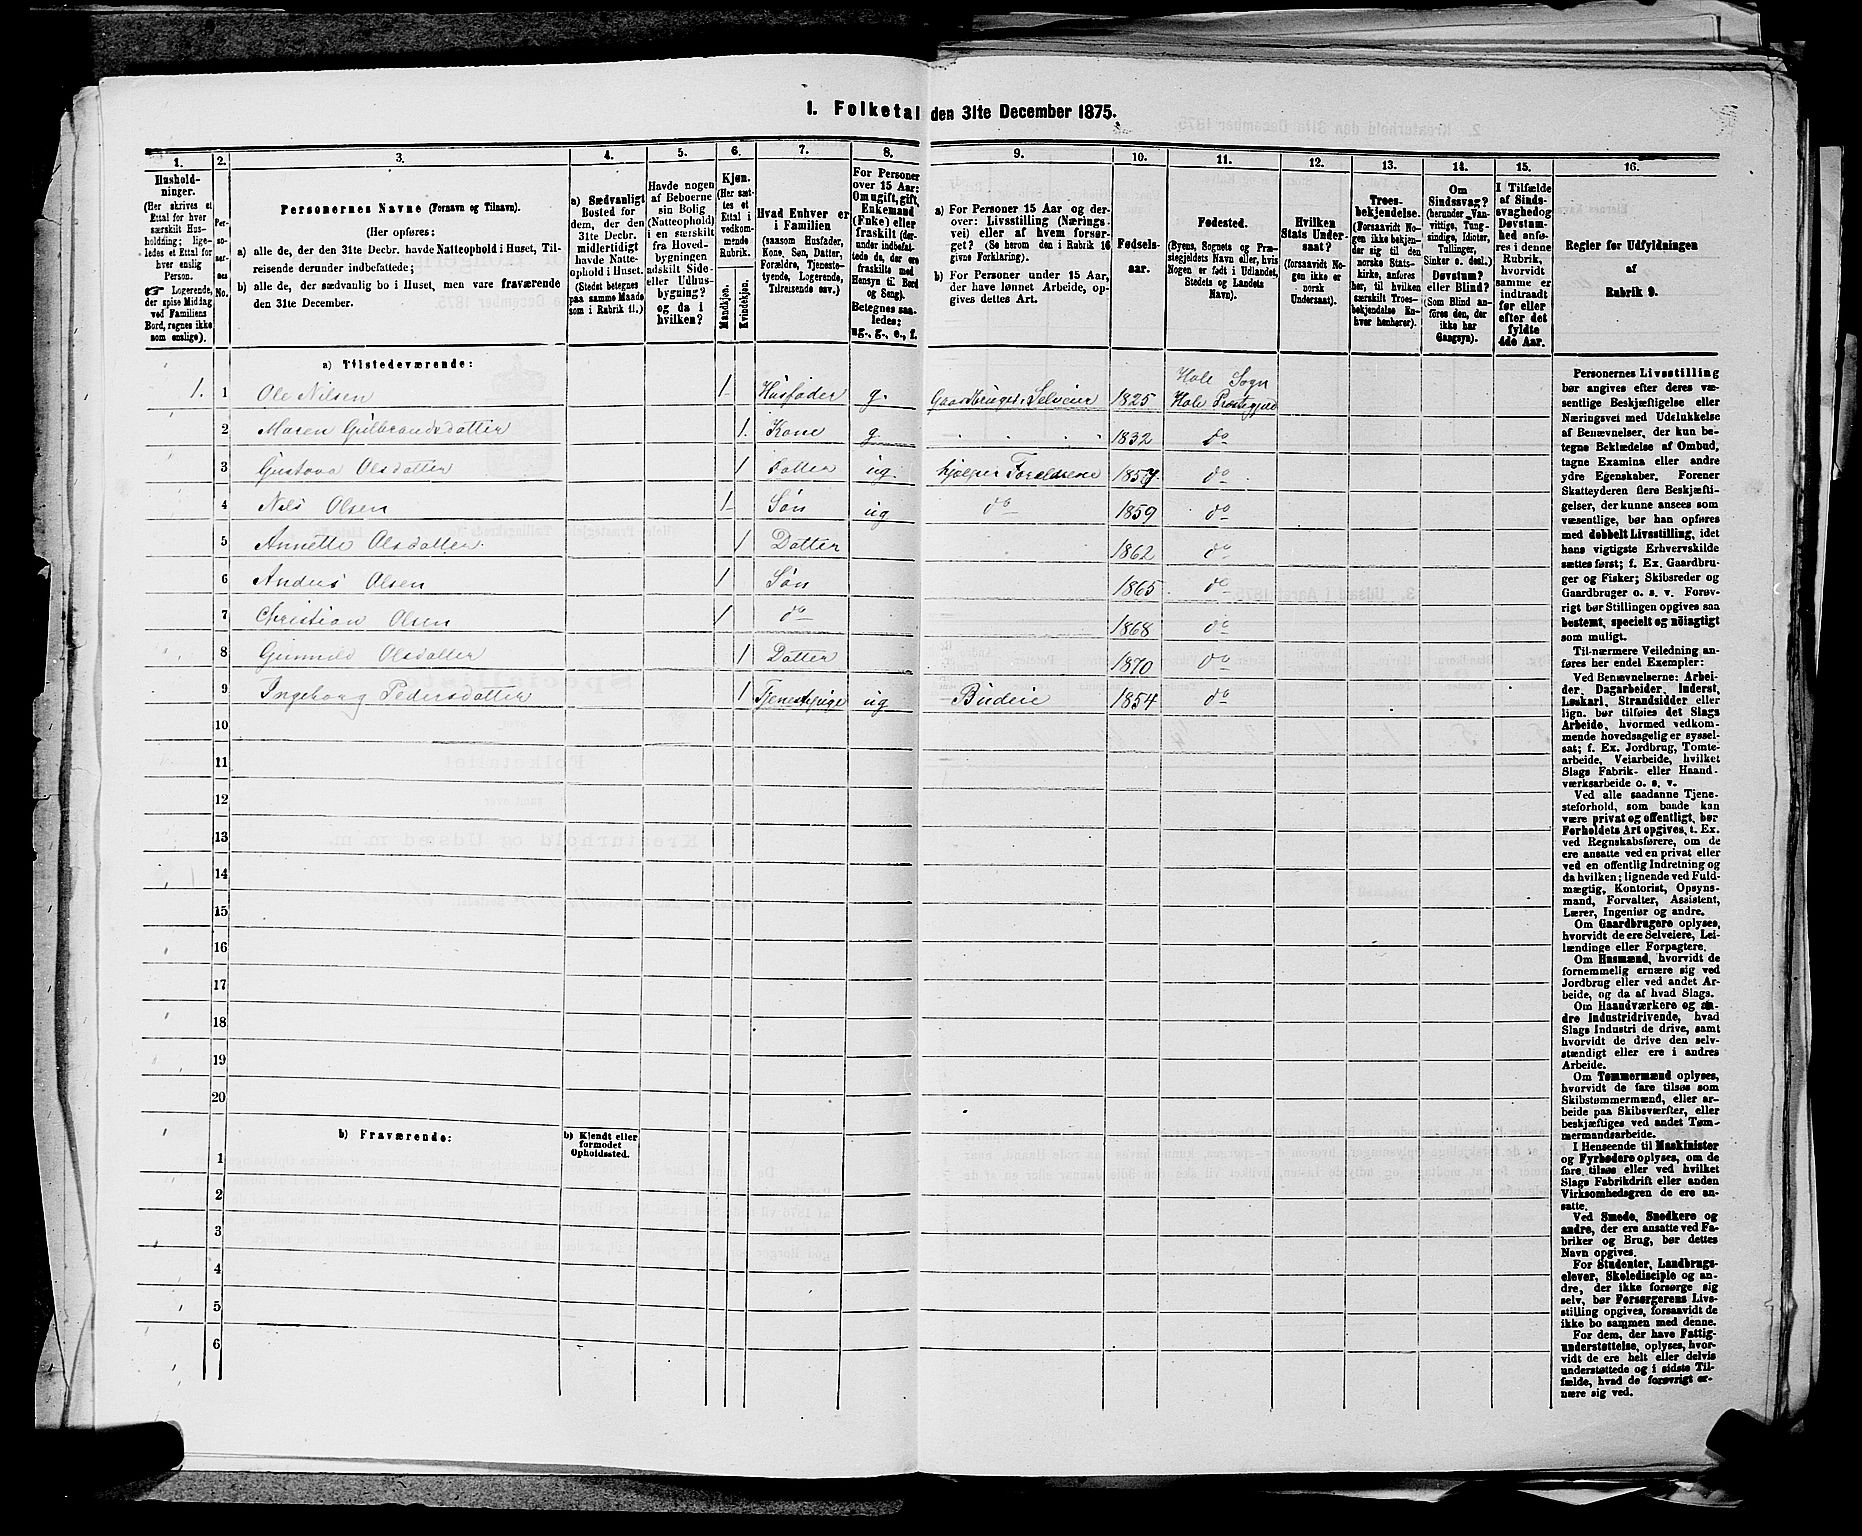 1. Folketal den 31te December 1875.
1. 2. 3. 4. 5. 6. 7. 8. 9. 10. 11. 12. 13. 14. 15. 16.
Hushold-
ninger.
(Her skrives et
Ettal for hver
særskilt Hus-
holdning; lige-
ledes et Ettal for
hver enslig
Person.
☛ Logerende,
der spise Middag
ved Familiens
Bord, regnes ikke
som enslige).
Per-
so-
ner-
nes
No.
Personernes Navne (Fornavn og Tilnavn).
(Her opføres:
a) alle de, der den 31te Decbr. havde Natteophold i Huset, Til-
reisende derunder indbefattede;
b) alle de, der sædvanlig bo i Huset, men vare fraværende
den 31te December.
a) Sædvanligt
Bosted for
dem, der den
31te Decbr.
midlertidigt
havde Natte-
ophold i Huset.
(Stedet betegnes
paa samme Maade
som i Rubrik 11.)
Havde nogen
af Beboerne
sin Bolig
(Natteophold)
i en særskilt
fra Hoved-
bygningen
adskilt Side-
eller Udhus-
bygning?
og da i
hvilken?
Kjøn.
(Her sæt-
tes et
Ettal i
vedkom-
mende
Rubrik.
Mandkjøn.
Kvindekjøn.
Hvad Enhver er
i Familien
(saasom Husfader,
Kone, Søn, Datter,
Forældre, Tjeneste-
tyende, Logerende,
Tilreisende osv.)
For Personer
over 15 Aar:
Om ugift, gift,
Enkemand
(Enke) eller
fraskilt (der-
under indbefat-
tede de, der ere
fraskilte med
Hensyn til Bord
og Seng).
Betegnes saa-
ledes:
ug., g., e., f.
a) For Personer 15 Aar og der-
over: Livsstilling (Nærings-
vei) eller af hvem forsør-
get? (Se herom den i Rubrik 16
givne Forklaring).
b) For Personer under 15 Aar,
der have lønnet Arbeide, op-
gives dettes Art.
Fødsels-
aar.
Fødested.
(Byens, Sognets og Præ-
stegjeldets Navn eller, hvis
Nogen er født i Udlandet,
Stedets og Landets
Navn).
Hvilken
Stats Under-
saat?
(forsaavidt No-
gen ikke er
norsk
Undersaat).
Troes-
bekjendelse.
(Forsaavidt No-
gen ikke bekjen-
der sig til den
norske Stats-
kirke, anføres
her, til hvilken
særskilt Troes-
bekjendelse En-
hver henhører).
Om
Sindssvag?
(herunder Van-
vittige, Tung-
sindige, Idioter,
Tullinger,
Sinker o. desl.)
Døvstum?
eller Blind?
(Som Blind an-
føres den, der
ikke har
Gangsyn).
I Tilfælde
af Sinds-
svaghed og
Døvstum-
hed anfø-
res i denne
Rubrik,
hvorvidt
samme er
indtraadt
før eller
efter det
fyldte
4de Aar.
Regler for Udfyldningen
af
Rubrik 9.
a) Tilstedeværende:
Hole Sogn
1. 1 Ole Nilsen 1 Husfader g. Gaardbruger, Selveier 1825 Hole Præstegjeld
2 Maren Gulbrandsdatter 1. Kone g 1832 do
3 Gustava Olsdatter 1 Datter ug. hjælper Forældrene 1857 do
4 Nils Olsen 1 Søn ug do 1859 do
5 Annette Olsdatter 1 Datter 1862 do
6 Anders Olsen 1 Søn 1865 do
7 Christian Olsen 1 do 1868 do
8 Gunnild Olsdatter 1 Datter 1870 do
9 Ingeborg Pedersdatter 1 Tjenestepige ug Budeie 1854 do
10
11
12
13
14
15
16
17
18
19
20
b) Fraværende:
b) Kjendt eller
formodet
Opholdssted.
1
2
3
4
5
6
Personernes Livsstilling
bør angives efter deres væ-
sentlige Beskjæftigelse eller
Næringsvei med Udelukkelse
af Benævnelser, der kun be-
tegne Beklædelse af Ombud,
tagne Examina eller andre
ydre Egenskaber. Forener
Skatteyderen flere Beskjæfti-
gelser, der kunne ansees som
væsentlige, bør han opføres
med dobbelt Livsstilling, idet
hans vigtigste Erhvervskilde
sættes først; f. Ex. Gaardbru-
ger og Fisker; Skibsreder og
Gaardbruger o. s. v. Forøv-
rigt bør Stillingen opgives saa
bestemt, specielt og nöiagtigt
som muligt.
Til nærmere Veiledning an-
føres her endel Exempler:
Ved Benævnelserne: Arbei-
der, Dagarbeider, Inderst,
Løskarl, Strandsidder eller
lign. bør tilføies det Slags
Arbeide, hvormed vedkom-
mende hovedsagelig er syssel-
sat; f. Ex. Jordbrug, Tomte-
arbeide, Veiarbeide, hvilket
Slags Fabrik- eller Haand-
værksarbeide o. s. v.
Ved alle saadanne Tjene-
steforhold, som baade kan
være privat og offentligt, bør
Forholdets Art opgives, t. Ex.
ved Regnskabsførere, om de
ere ansatte ved en privat eller
ved en offentlig Indretning og
da hvilken; lignende ved Fuld-
mægtig, Kontorist, Opsyns-
mand, Forvalter, Assistent,
Lærer, Ingeniør og andre.
Om Gaardbrugere oplyses,
hvorvidt de ere Selveiere, Lei-
lændinge eller Forpagtere.
Om Husmænd, hvorvidt de
fornemmelig ernære sig ved
Jordbrug eller ved andet Ar-
beide, og da af hvad Slags.
Om Haandværkere og an-
dre Industridrivende, hvad
Slags Industri de drive, samt
hvorvidt de drive den selv-
stændigt eller ere i andres
Arbeide.
Om Tømmermænd oplyses,
hvorvidt de fare tilsøs som
Skibstømmermænd, eller ar-
beide paa Skibsværfter, eller
beskjæftiges ved andet Tøm-
mermandsarbeide.
I Henseende til Maskinister
og Fyrbødere oplyses, om de
fare tilsøs eller ved hvilket
Slags Fabrikdrift eller anden
Virksomhedsgren de ere an-
satte.
Ved Smede, Snedkere og
andre, der ere ansatte ved Fa-
briker og Brug, bør dettes
Navn opgives.
For Studenter, Landbrugs-
elever, Skoledisciple og an-
dre, der ikke forsørge sig
selv, bør Forsørgerens Livs-
stilling opgives, forsaavidt de
ikke bo sammen med denne.
For dem, der have Fattig-
understøttelse, oplyses, hvor-
vidt de ere helt eller delvis
understøttede og i sidste Til-
fælde, hvad de forøvrigt er-
nære sig ved.